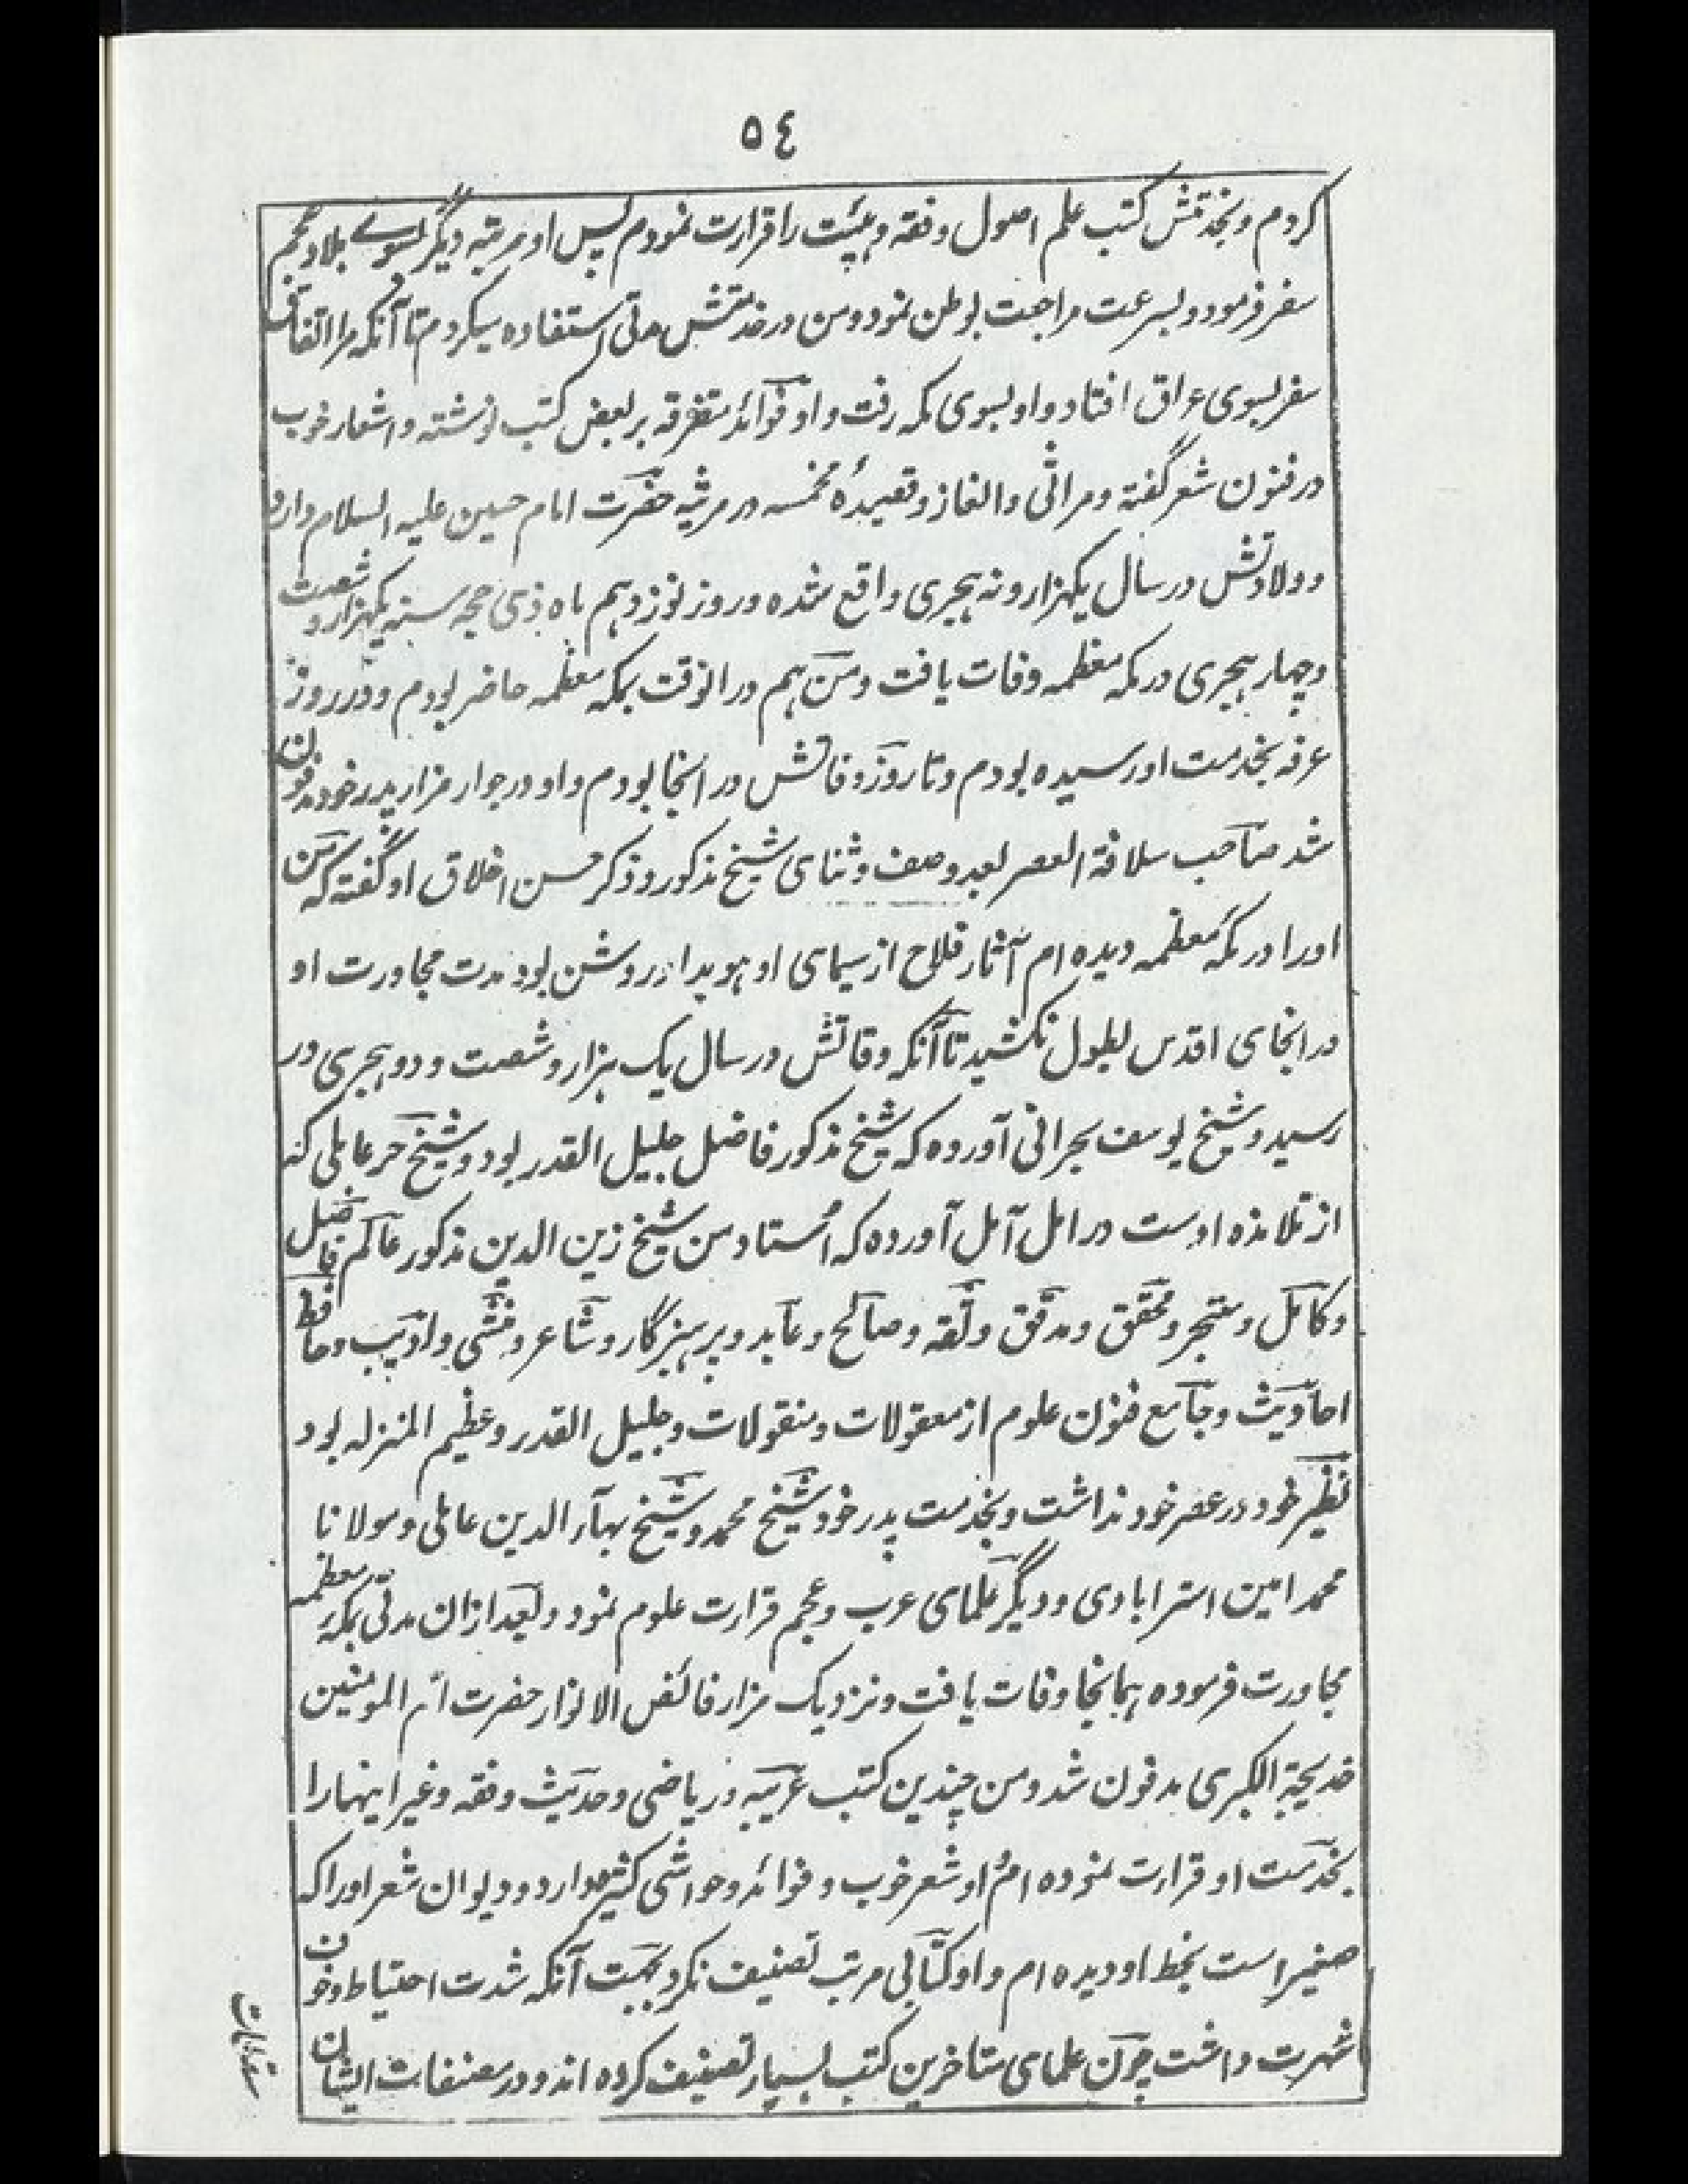 ٥٤
کردم وبخدمتش کتب علم اصول وفقه وهیئت را قرارت نمودم پس او مرتبه دیگر بسوے بلاد عجم
سفر فرمود وبسرعت مراجعت بوطن نمود ومن در خدمتش مدتی استفاده میکردم تا آنکه مرا اتفاق
سفر بسوی عراق افتاد واو بسوی مکه رفت واو فوائد متفرقه بر بعض کتب نوشته واشعار خوب
در فنون شعر گفته ومراثی والغاز وقصیدهٔ مخمسه در مرثیه حضرت امام حسین علیه السلام دارد
وولادتش در سال یکهزار ونه هجری واقع شده وروز نوزدهم ماه ذی حجه سنه یکهزار وشصت
وچهار هجری در مکه معظمه وفات یافت ومن هم در انوقت بمکه معظمه حاضر بودم ودر روز
عرفه بخدمت او رسیده بودم وتا روز وفاتش در انجا بودم واو در جوار مزار پدر خود مدفون
شد صاحب سلافة العصر بعد وصف وثنای شیخ مذکور وذکر حسن اخلاق او گفته که من
اورا در مکه معظمه دیده ام آثار فلاح از سیمای او هویدا وروشن بود مدت مجاورت او
در انجای اقدس بطول نکشید تا آنکه وفاتش در سال یک هزار وشصت ودو هجری در
رسید وشیخ یوسف بحرانی آورده که شیخ مذکور فاضل جلیل القدر بود وشیخ حر عاملی که
از تلامذه اوست در امل آمل آورده که اُستاد من شیخ زین الدین مذکور عالم فاضل
وکامل ومتبحر ومحقق ومدقق وثقه وصالح وعابد وپرهیزگار وشاعر ومنشی وادیب وحافظ
احادیث وجامع فنون علوم از معقولات ومنقولات وجلیل القدر وعظیم المنزله بود
نظیر خود در عصر خود نداشت وبخدمت پدر خود شیخ محمد وشیخ بهآء الدین عاملی ومولانا
محمد امین استرابادی ودیگر علمای عرب وعجم قرارت علوم نمود وبعد ازان مدتی بمکه معظمه
مجاورت فرموده همانجا وفات یافت ونزدیک مزار فائض الانوار حضرت ام المومنین
خدیجة الکبری مدفون شد ومن چندین کتب عربیه وریاضی وحدیث وفقه وغیر اینهارا
بخدمت او قرارت نموده ام او شعر خوب وفوائد وحواشی کثیره دارد ودیوان شعر اورا که
صغیر است بخط او دیده ام واو کتابی مرتب تصنیف نکرد بجهت آنکه شدت احتیاط وخوف
شهرت داشت چون علمای متاخرین کتب بسیار تصنیف کرده اند ودر مصنفات ایشان